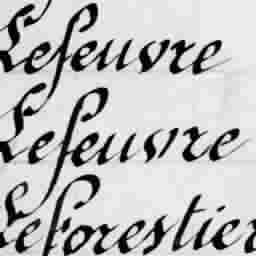 Lefeuvre
Lefeuvre
Leforestier